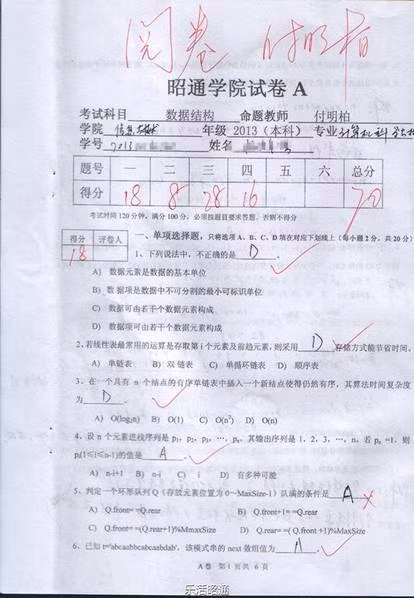 阅卷 付明柏
昭通学院试卷 A
考试科目 数据结构 命题教师 付明柏
学院 信息 年级 2013（本科） 专业 计算机科
学号 2013 姓名
题号 一 二 三 四 五 六 总分
得分 18 8 28 16 70
考试时间120分钟，满分100分，必须按题目要求答题，否则不得分
得分 评卷人
18
一、单项选择题，只将选项 A、B、C、D 填在对应下划线上（每小题 2 分，共 20 分）
1、下列说法中，不正确的是 D 。
A) 数据元素是数据的基本单位
B) 数据项是数据中不可分割的最小可标识单位
C) 数据可由若干个数据元素构成
D) 数据项可由若干个数据元素构成
2、若线性表最常用的运算是存取第 i 个元素及前趋元素，则采用 D 存储方式能节省时间。
A) 单链表 B) 双链表 C) 单循环链表 D) 顺序表
3、在一个具有 n 个结点的有序单链表中插入一个新结点使得仍然有序，其算法时间复杂度
为 D 。
A) O(log₂n) B) O(1) C) O(n²) D) O(n)
4、设 n 个元素进栈序列是 p₁，p₂，p₃，…，pₙ，其输出序列是 1，2，3，…，n，若 pₙ =1，则
pᵢ(1≤i≤n-1)的值是 A 。
A) n-i+1 B) n-i C) i D) 有多种可能
5、判定一个环形队列 Q（存放元素位置为 0～MaxSize-1）队满的条件是 A
A) Q.front= =Q.rear B) Q.front+1= =Q.rear
C) Q.front= =(Q.rear+1)%MmaxSize D) Q.rear= =( Q.front +1)%MaxSize
6、已知 t='abcaabbcabcaabdab'，该模式串的 next 数组值为 A 。
A卷 第 1 页 共 6 页
乐活昭通